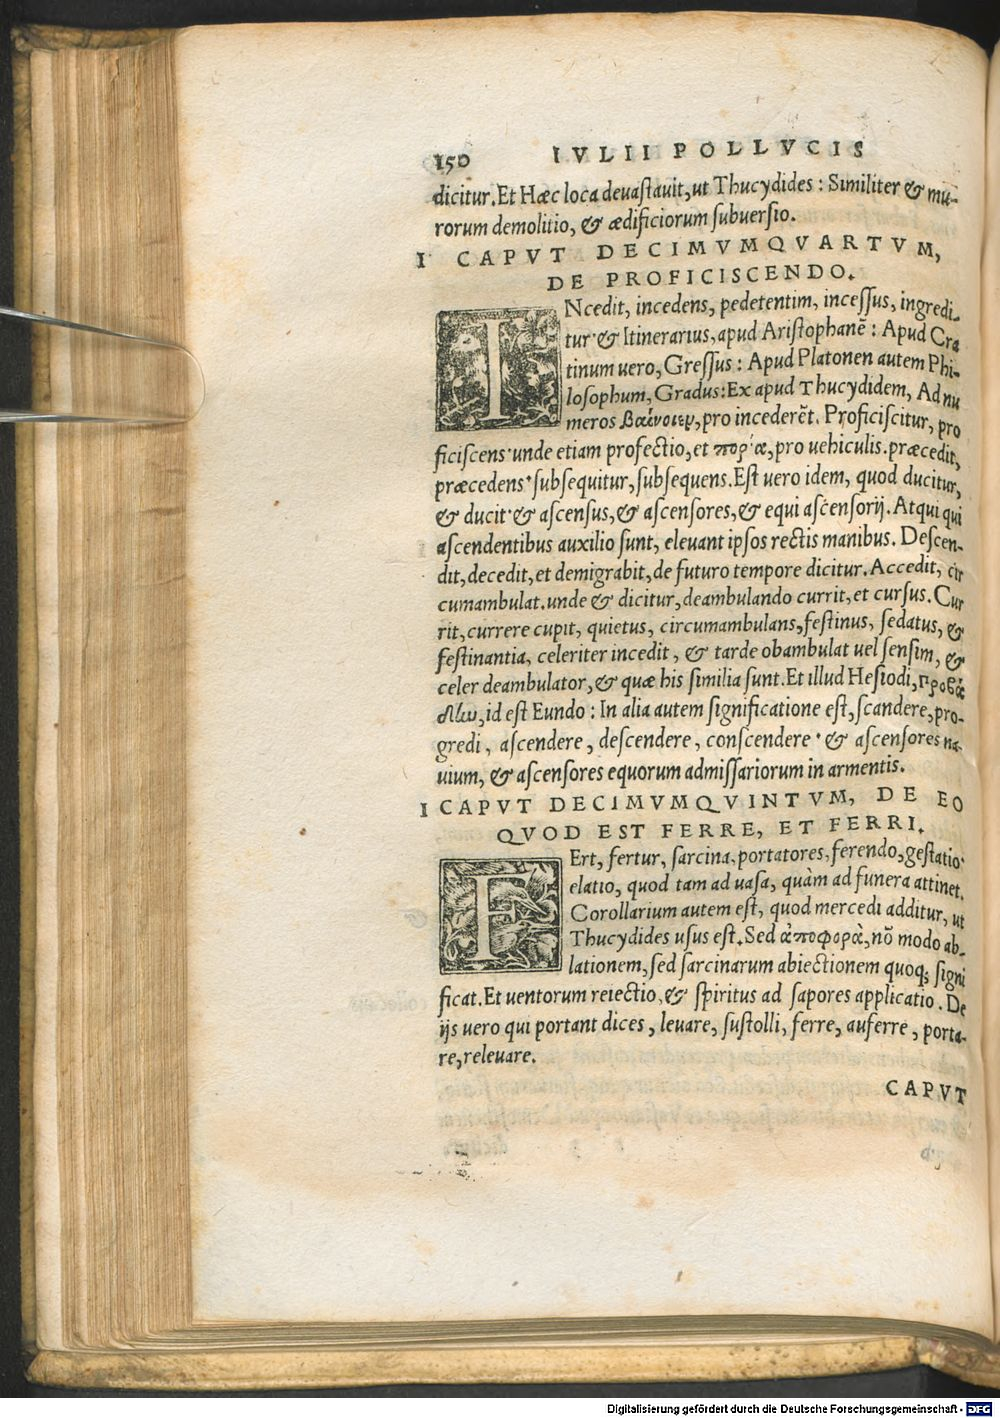 150 IVLII POLLVCIS
dicitur. Et Hæc loca deuastauit, ut Thucydides: Similiter & mu-
rorum demolitio, & ædificiorum subuersio.
I CAPVT DECIMVMQVARTVM,
DE PROFICISCENDO.
INcedit, incedens, pedetentim, incessus, ingredi-
tur· & Itinerarius, apud Aristophanē: Apud Cra
tinum uero, Gressus: Apud Platonen autem Phi-
losophum, Gradus: Ex apud Thucydidem, Ad nu
meros βαίνοιεν, pro incederēt. Proficiscitur, pro
ficiscens· unde etiam profectio, et πορ´α, pro uehiculis. præcedit,
præcedens· subsequitur, subsequens. Est uero idem, quod ducitur,
& ducit· & ascensus, & ascensores, & equi ascensorij. At qui qui
ascendentibus auxilio sunt, eleuant ipsos rectis manibus. Descen-
dit, decedit, et demigrabit, de futuro tempore dicitur. Accedit, cir
cumambulat. unde & dicitur, deambulando currit, et cursus. Cur
rit, currere cupit, quietus, circumambulans, festinus, sedatus, &
festinantia, celeriter incedit, & tarde obambulat uel sensim, &
celer deambulator, & quæ his similia sunt. Et illud Hesiodi, προβά
δἰω, id est Eundo: In alia autem significatione est, scandere, pro-
gredi, ascendere, descendere, conscendere· & ascensores na-
uium, & ascensores equorum admissariorum in armentis.
I CAPVT DECIMVMQVINTVM, DE EO
QVOD EST FERRE, ET FERRI.
FErt, fertur, sarcina, portatores, ferendo, gestatio·
elatio, quod tam ad uasa, quàm ad funera attinet.
Corollarium autem est, quod mercedi additur, ut
Thucydides usus est. Sed ἀποφορὰ, nō modo ab-
lationem, sed sarcinarum abiectionem quoq; signi
ficat. Et uentorum reiectio, & spiritus ad sapores applicatio. De
ijs uero qui portant dices, leuare, sustolli, ferre, auferre, porta-
re, releuare.
CAPVT
Digitalisierung gefördert durch die Deutsche Forschungsgemeinschaft - DFG